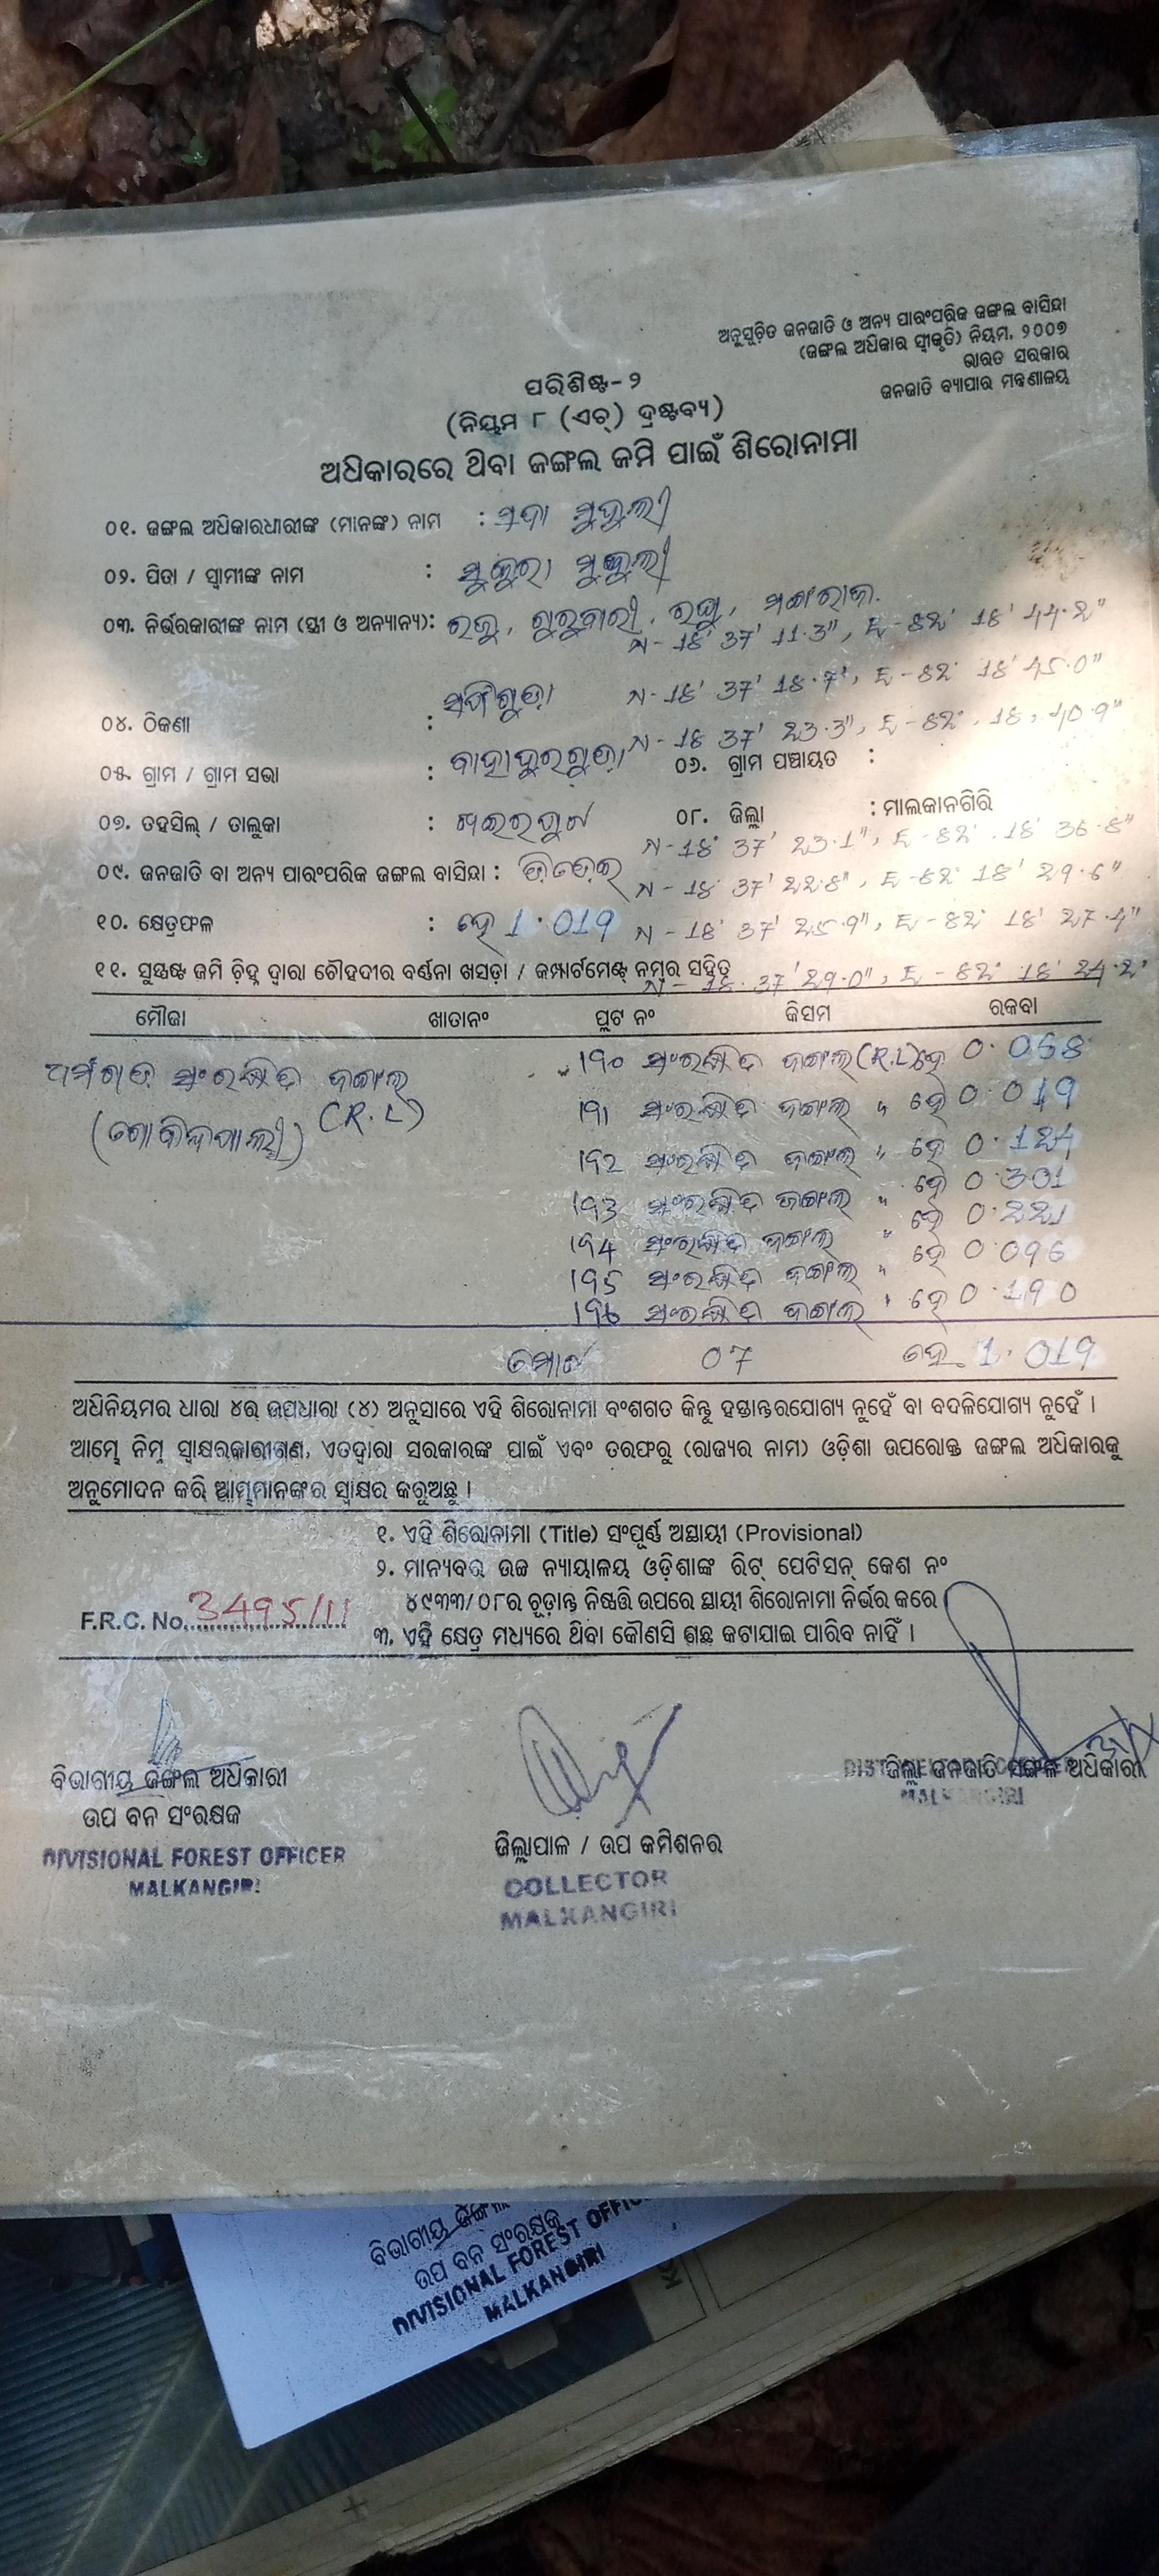 ଅନୁସୂଚିତ ଜନଜାତି ଓ ଅନ୍ୟ ପାରଂପରିକ ଜଙ୍ଗଲ ବାସିନ୍ଦା
(ଜଙ୍ଗଲ ଅଧିକାର ସ୍ୱୀକୃତି) ନିୟମ, ୨୦୦୭
ଭାରତ ସରକାର
ଜନଜାତି ବ୍ୟାପାର ମନ୍ତ୍ରଣାଳୟ
ପରିଶିଷ୍ଟ- ୨
(ନିୟମ ୮ (ଏଚ୍) ଦ୍ରଷ୍ଟବ୍ୟ)
ଅଧିକାରରେ ଥିବା ଜଙ୍ଗଲ ଜମି ପାଇଁ ଶିରୋନାମା
୦୧. ଜଙ୍ଗଲ ଅଧିକାରଧାରୀଙ୍କ (ମାନଙ୍କ) ନାମ :
୦୨. ପିତା / ସ୍ୱାମୀଙ୍କ ନାମ :
୦୩. ନିର୍ଭରକାରୀଙ୍କ ନାମ (ସ୍ତ୍ରୀ ଓ ଅନ୍ୟାନ୍ୟ): ରଜୁ, ଗୁରୁବାରୀ, ରଘୁ,
N - 18° 37' 11.3", E - 82° 18' 44.2"
N - 18° 37' 18.7", E - 82° 18' 45.0"
୦୪. ଠିକଣା :
N - 18 37' 23.3", E - 82°, 18, 40.9"
୦୫. ଗ୍ରାମ / ଗ୍ରାମ ସଭା : ବାହାଦୁରଗୁଡ଼ା ୦୬. ଗ୍ରାମ ପଞ୍ଚାୟତ :
୦୭. ତହସିଲ୍ / ତାଲୁକା : ଖଇରପୁଟ ୦୮. ଜିଲ୍ଲା : ମାଲକାନଗିରି
N - 18° 37' 23.1", E - 82° 18' 36.8"
୦୯. ଜନଜାତି ବା ଅନ୍ୟ ପାରଂପରିକ ଜଙ୍ଗଲ ବାସିନ୍ଦା :
N - 18° 37' 22.8", E - 82° 18' 29.6"
୧୦. କ୍ଷେତ୍ରଫଳ : ହେ 1.019 N - 18° 37' 25.9", E - 82° 18' 27.4"
୧୧. ସୁସ୍ପଷ୍ଟ ଜମି ଚିହ୍ନ ଦ୍ୱାରା ଚୌହଦୀର ବର୍ଣ୍ଣନା ଖସଡ଼ା / କମ୍ପାର୍ଟମେଣ୍ଟ୍ ନମ୍ବର ସହିତ
N - 18° 37' 29.0", E - 82° 18' 24.2"
ମୌଜା ଖାତାନଂ ପ୍ଲଟ ନଂ କିସମ ରକବା
ସଂରକ୍ଷିତ ଜଙ୍ଗଲ (R.L)
(ଗୋବିନ୍ଦପାଲ୍ଲୀ)
୧୭୦ ସଂରକ୍ଷିତ ଜଙ୍ଗଲ (R.L) ହେ 0.068
୧୭୧ ସଂରକ୍ଷିତ ଜଙ୍ଗଲ " ହେ 0.019
୧୭2 ସଂରକ୍ଷିତ ଜଙ୍ଗଲ " ହେ 0.124
୧୭3 ସଂରକ୍ଷିତ ଜଙ୍ଗଲ " ହେ 0.301
୧୭4 ସଂରକ୍ଷିତ ଜଙ୍ଗଲ " ହେ 0.221
୧୭5 ସଂରକ୍ଷିତ ଜଙ୍ଗଲ " ହେ 0.096
୧୭6 ସଂରକ୍ଷିତ ଜଙ୍ଗଲ " ହେ 0.190
ମୋଟ 07 ହେ. 1.019
ଅଧିନିୟମର ଧାରା ୪ର ଉପଧାରା (୪) ଅନୁସାରେ ଏହି ଶିରୋନାମା ବଂଶଗତ କିନ୍ତୁ ହସ୍ତାନ୍ତରଯୋଗ୍ୟ ନୁହେଁ ବା ବଦଳିଯୋଗ୍ୟ ନୁହେଁ ।
ଆମ୍ଭେ ନିମ୍ନ ସ୍ୱାକ୍ଷରକାରୀଗଣ, ଏତଦ୍ୱାରା ସରକାରଙ୍କ ପାଇଁ ଏବଂ ତରଫରୁ (ରାଜ୍ୟର ନାମ) ଓଡ଼ିଶା ଉପରୋକ୍ତ ଜଙ୍ଗଲ ଅଧିକାରକୁ
ଅନୁମୋଦନ କରି ଆମ୍ଭମାନଙ୍କର ସ୍ୱାକ୍ଷର କରୁଅଛୁ ।
୧. ଏହି ଶିରୋନାମା (Title) ସଂପୂର୍ଣ୍ଣ ଅସ୍ଥାୟୀ (Provisional)
୨. ମାନ୍ୟବର ଉଚ୍ଚ ନ୍ୟାୟାଳୟ ଓଡ଼ିଶାଙ୍କ ରିଟ୍ ପେଟିସନ୍ କେଶ ନଂ
୪୯୩୩/୦୮ର ଚୂଡ଼ାନ୍ତ ନିଷ୍ପତ୍ତି ଉପରେ ସ୍ଥାୟୀ ଶିରୋନାମା ନିର୍ଭର କରେ ।
F.R.C. No. 3495/11
୩. ଏହି କ୍ଷେତ୍ର ମଧ୍ୟରେ ଥିବା କୌଣସି ଗଛ କଟାଯାଇ ପାରିବ ନାହିଁ ।
ବିଭାଗୀୟ ଜଙ୍ଗଲ ଅଧିକାରୀ
ଉପ ବନ ସଂରକ୍ଷକ
DIVISIONAL FOREST OFFICER
MALKANGIRI
ଜିଲ୍ଲାପାଳ / ଉପ କମିଶନର
COLLECTOR
MALKANGIRI
ଜିଲ୍ଲା ଜନଜାତି ମଙ୍ଗଳ ଅଧିକାରୀ
MALKANGIRI
ବିଭାଗୀୟ ଜଙ୍ଗଲ
ଉପ ବନ ସଂରକ୍ଷକ
DIVISIONAL FOREST OFFIC
MALKANGIRI